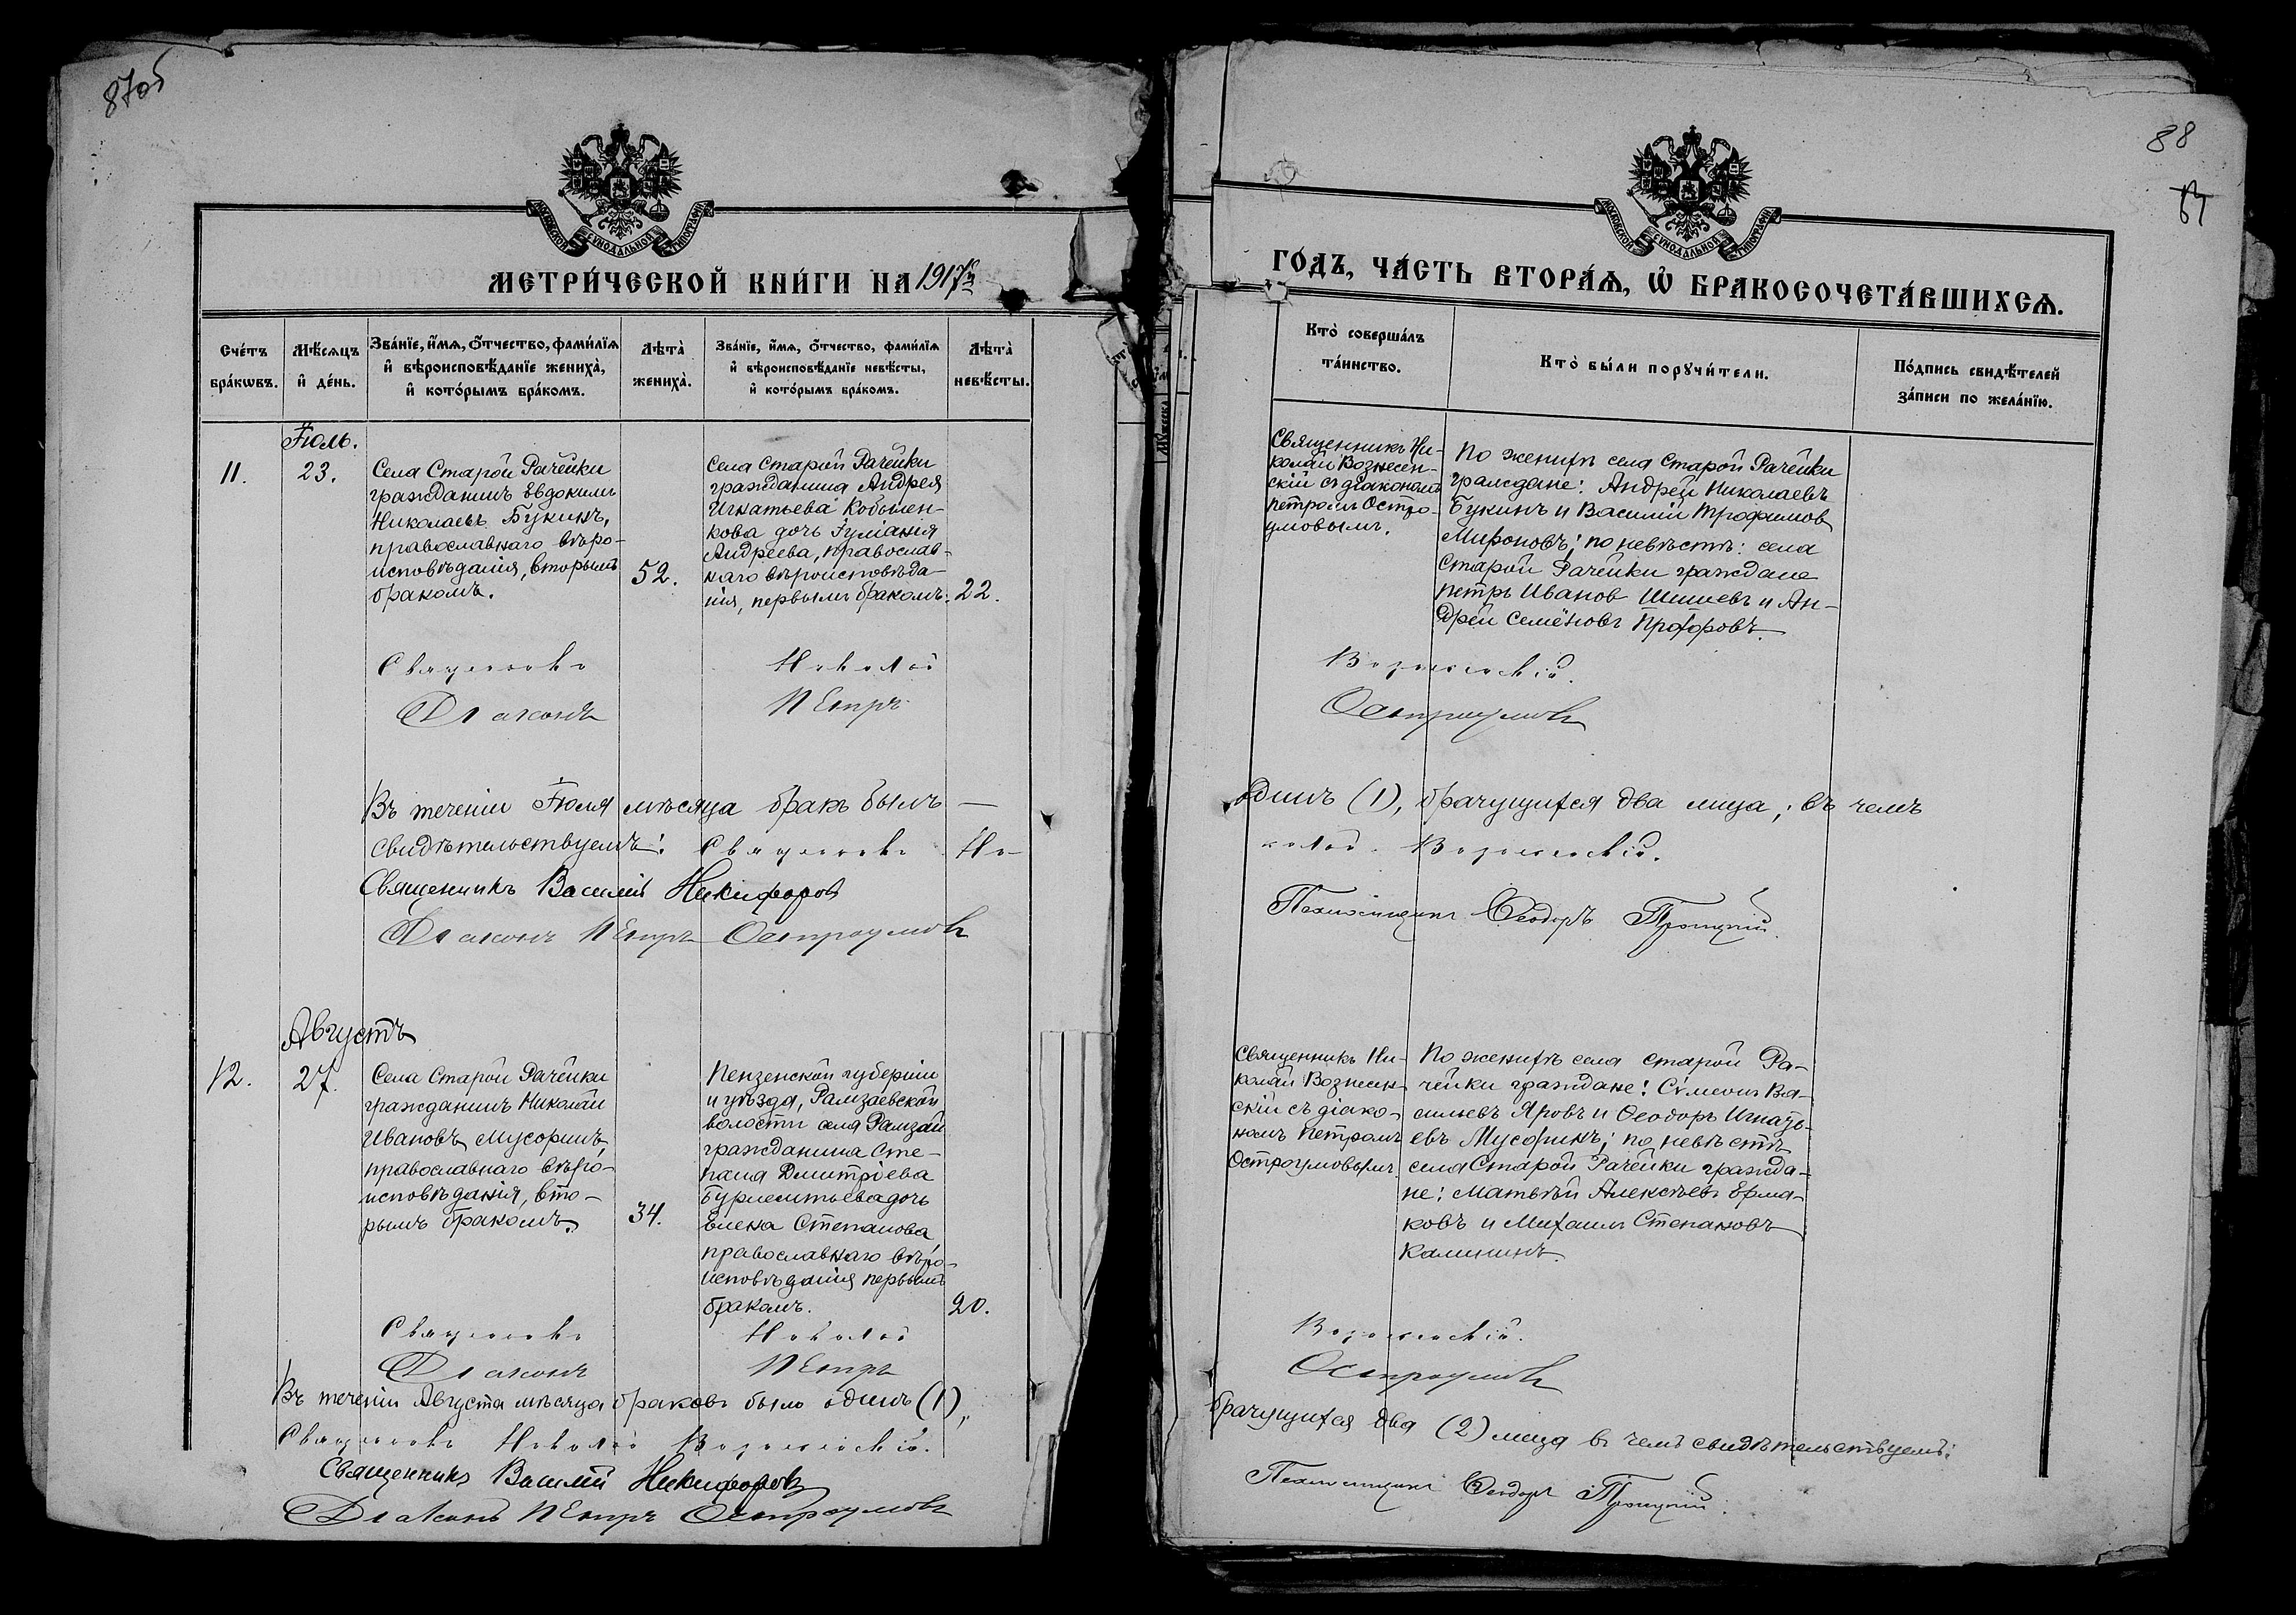 87об
МОСКОВСКОЙ СУНОДАЛЬНОЙ ТИПОГРАФІИ
МЕТРИ́ЧЕСКОЙ КНИ́ГИ НА 1917й
Сче́тъ бра́кωвъ.
Мѣ́сяцъ и҆ де́нь.
Зва́нїе, и҆́мѧ, ѻ҆́тчество, фами́лїѧ и҆ вѣроисповѣ́данїе жениха̀, и҆ кото́рымъ бра́комъ.
Лѣта̀ жениха̀.
Зва́нїе, и҆́мѧ, ѻ҆́тчество, фами́лїѧ и҆ вѣроисповѣ́данїе невѣ́сты, и҆ кото́рымъ бра́комъ.
Лѣта̀ невѣ́сты.
Іюль.
11.
23.
Села Старой Рачейки
гражданинъ Евдокимъ
Николаевъ Букинъ,
православнаго вѣро-
исповѣданія, вторымъ
бракомъ.
52.
Села Старой Рачейки
гражданина Андрея
Игнатьева Кобылен-
кова дочь Іуліанія
Андреева, православ-
наго вѣроисповѣда-
нія, первымъ бракомъ.
22.
Священникъ
Николай
Діаконъ
Петръ
Въ теченіи Іюля мѣсяца бракъ былъ —
свидѣтельствуемъ: Священникъ Ни-
Священникъ Василій Никифоровъ
Діаконъ Петръ Остроумовъ
Августъ
12.
27.
Села Старой Рачейки
гражданинъ Николай
Ивановъ Мусоринъ,
православнаго вѣро-
исповѣданія, вто-
рымъ бракомъ.
34.
Пензенской губерніи
и уѣзда, Рамзаевской
волости села Рамзай
гражданина Сте-
пана Дмитріева
Бурлентьева дочь
Елена Степанова,
православнаго вѣро-
исповѣданія первымъ
бракомъ.
20.
Священникъ
Николай
Діаконъ
Петръ
Въ теченіи Августа мѣсяца браковъ было одинъ (1),
Священникъ Николай Вознесенскій.
Священникъ Василій Никифоровъ
Діаконъ Петръ Остроумовъ
88
МОСКОВСКОЙ СУНОДАЛЬНОЙ ТИПОГРАФІИ
ГО́ДЪ, ЧА́СТЬ ВТОРА́Ѧ, Ѽ БРАКОСОЧЕТА́ВШИХСѦ.
Кто̀ соверша́лъ та́инство.
Кто̀ бы́ли порꙋчи́тели.
По́дпись свидѣ́телей за́писи по жела́нїю.
Священникъ Ни-
колай Вознесен-
скій съ діакономъ
Петромъ Остро-
умовымъ.
По женихѣ села Старой Рачейки
граждане: Андрей Николаевъ
Букинъ и Василій Трофимов
Мироновъ; по невѣстѣ: села
Старой Рачейки граждане
Петръ Иванов Шишевъ и Ан-
дрей Семёновъ Прохоровъ.
Вознесенскій.
Остроумовъ
одинъ (1), брачущихся два лица; въ чемъ
колай Вознесенскій.
Псаломщикъ Ѳеодоръ Троицкій.
Священникъ Ни-
колай Вознесен-
скій съ діако-
номъ Петромъ
Остроумовымъ.
По женихѣ села Старой Ра-
чейки граждане: Сѵмеонъ Ва-
сильевъ Яровъ и Ѳеодоръ Игнать-
евъ Мусоринъ; по невѣстѣ
села Старой Рачейки гражда-
не: Матвѣй Алексѣевъ Ерма-
ковъ и Михаилъ Степановъ
Калининъ.
Вознесенскій.
Остроумовъ
брачущихся два (2) лица въ чемъ свидѣтельствуемъ:
Псаломщикъ Ѳеодоръ Троицкій.